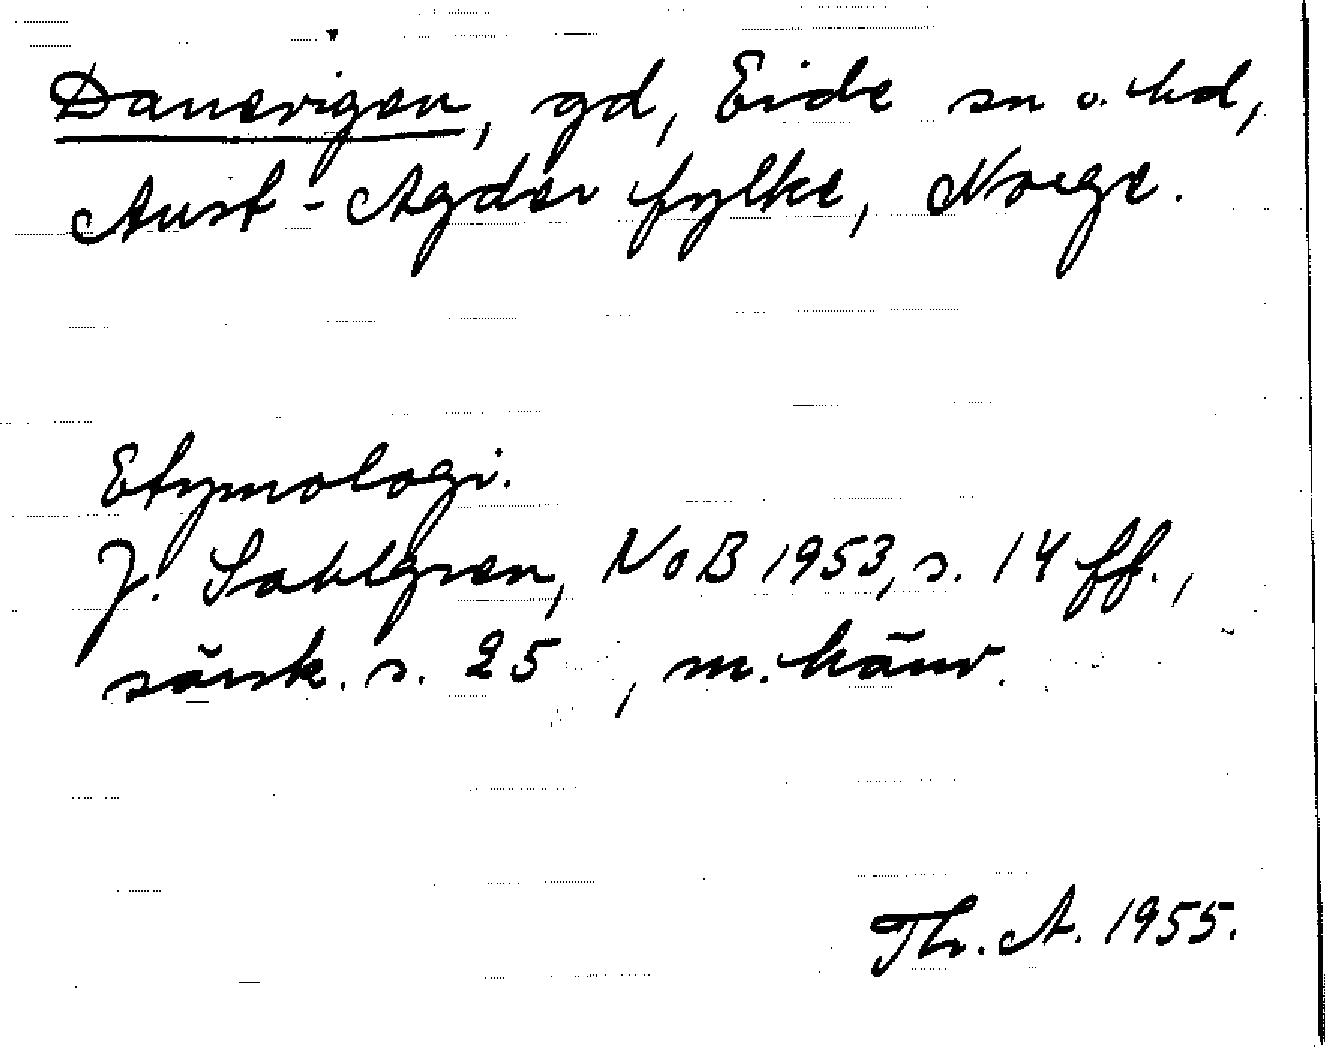 Danevigen, gd, Eide sn o. hd,
Aust-Agder fylke, Norge.
Etymologi.
J. Sahlgren, NoB 1953, s. 14 ff.,
särsk. s. 25, m. hänv.
Th. A. 1955.